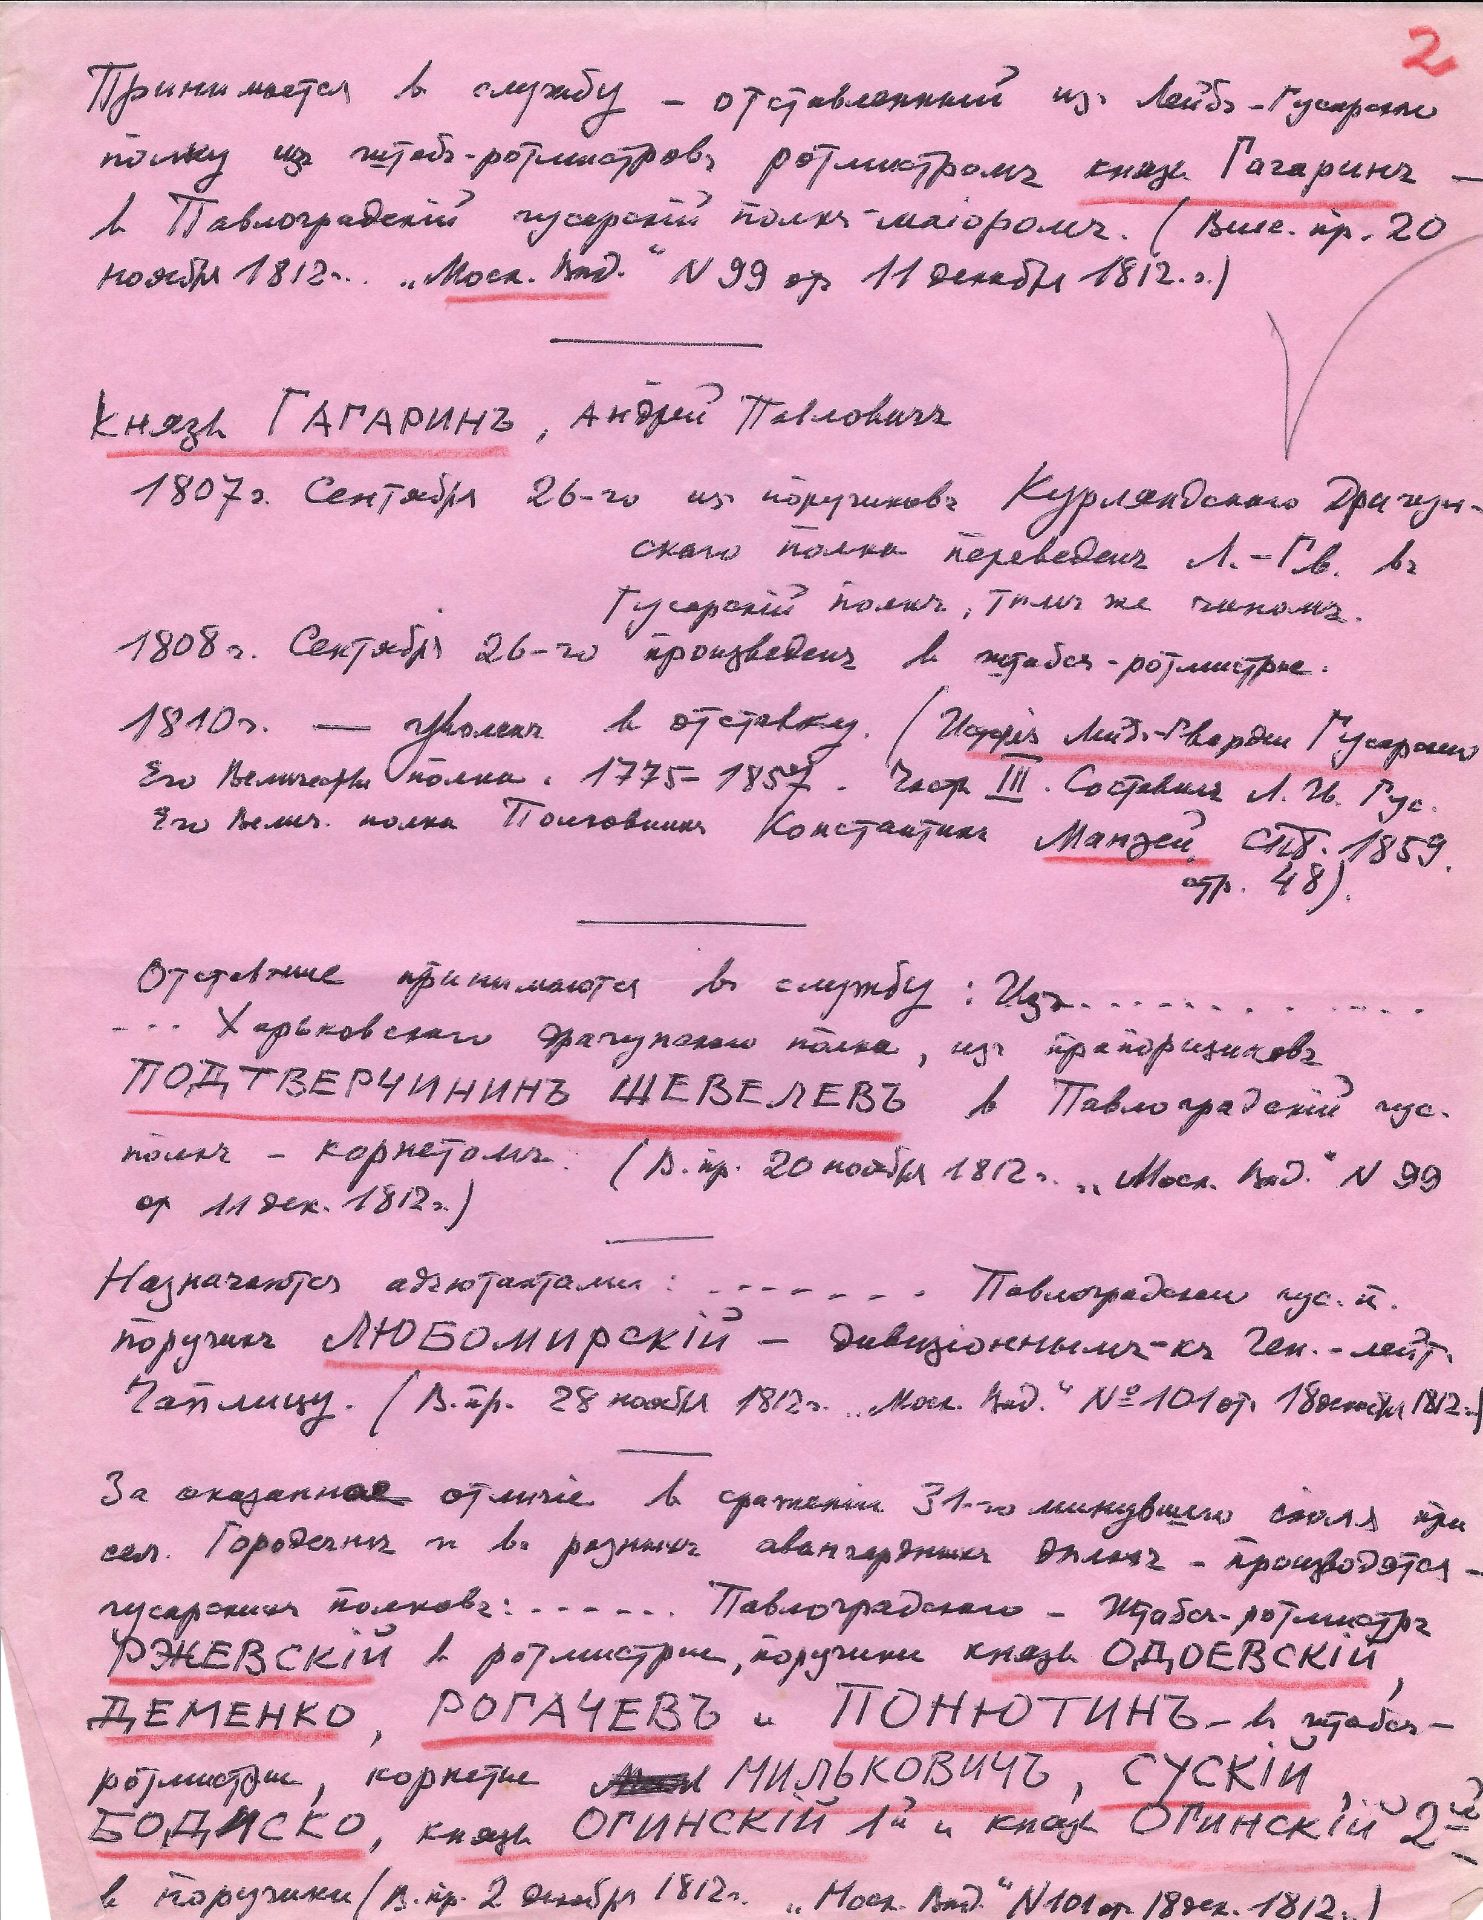 2
Принимается въ службу – отставленный изъ Лейбъ-Гусарскаго
полку изъ штабъ-ротмистровъ ротмистромъ князь Гагаринъ —
въ Павлоградскій гусарскій полкъ-маіоромъ. (Выс. пр. 20
ноября 1812 г. „Моск. Вѣд.“ N 99 отъ 11 декабря 1812 г.)
Князь ГАГАРИНЪ, Андрей Павловичъ
1807 г. Сентября 26-го изъ поручиковъ Курляндскаго Драгун-
скаго полка переведенъ Л.-Гв. въ
Гусарскій полкъ, тѣмъ же чиномъ.
1808 г. Сентября 26-го произведенъ въ штабсъ-ротмистры.
1810 г. — уволенъ въ отставку. (Исторія Лейбъ-Гвардіи Гусарскаго
Его Величества полка. 1775–1857. Часть III. Составилъ Л. Гв. Гус.
Его Велич. полка Полковникъ Константинъ Манзей. СПБ. 1859.
стр. 48).
Отставные принимаются въ службу: Изъ . . . . . . . . . . .
- - - Харьковскаго драгунскаго полка, изъ прапорщиковъ
ПОДТВЕРЧИНИНЪ ШЕВЕЛЕВЪ въ Павлоградскій гус.
полкъ – корнетомъ. (В. пр. 20 ноября 1812 г. „Моск. Вѣд.“ N 99
от 11 дек. 1812 г.)
Назначаются адъютантами: - - - - - - - Павлоградскаго гус. п.
поручикъ ЛЮБОМИРСКІЙ – дивизіоннымъ-къ Ген.-лейт.
Чаплицу. (В. пр. 28 ноября 1812 г. „Моск. Вѣд.“ № 101 отъ 18 декабря 1812 г.)
За оказанное отличіе въ сраженіи 31-го минувшаго іюля при
сел. Городечнѣ и въ разныхъ авангардныхъ дѣлахъ – производятся –
гусарскихъ полковъ: - - - - - - Павлоградскаго – Штабсъ-ротмистръ
РЖЕВСКІЙ въ ротмистры, поручики князь ОДОЕВСКІЙ,
ДЕМЕНКО, РОГАЧЕВЪ и ПОНЮТИНЪ – въ штабсъ-
ротмистры, корнеты МИЛЬКОВИЧЪ, СУСКІЙ,
БОДИСКО, князь ОГИНСКІЙ 1й и князь ОГИНСКІЙ 2й –
въ поручики (В. пр. 2 декабря 1812 г. „Моск. Вѣд.“ N 101 от 18 дек. 1812 г.)